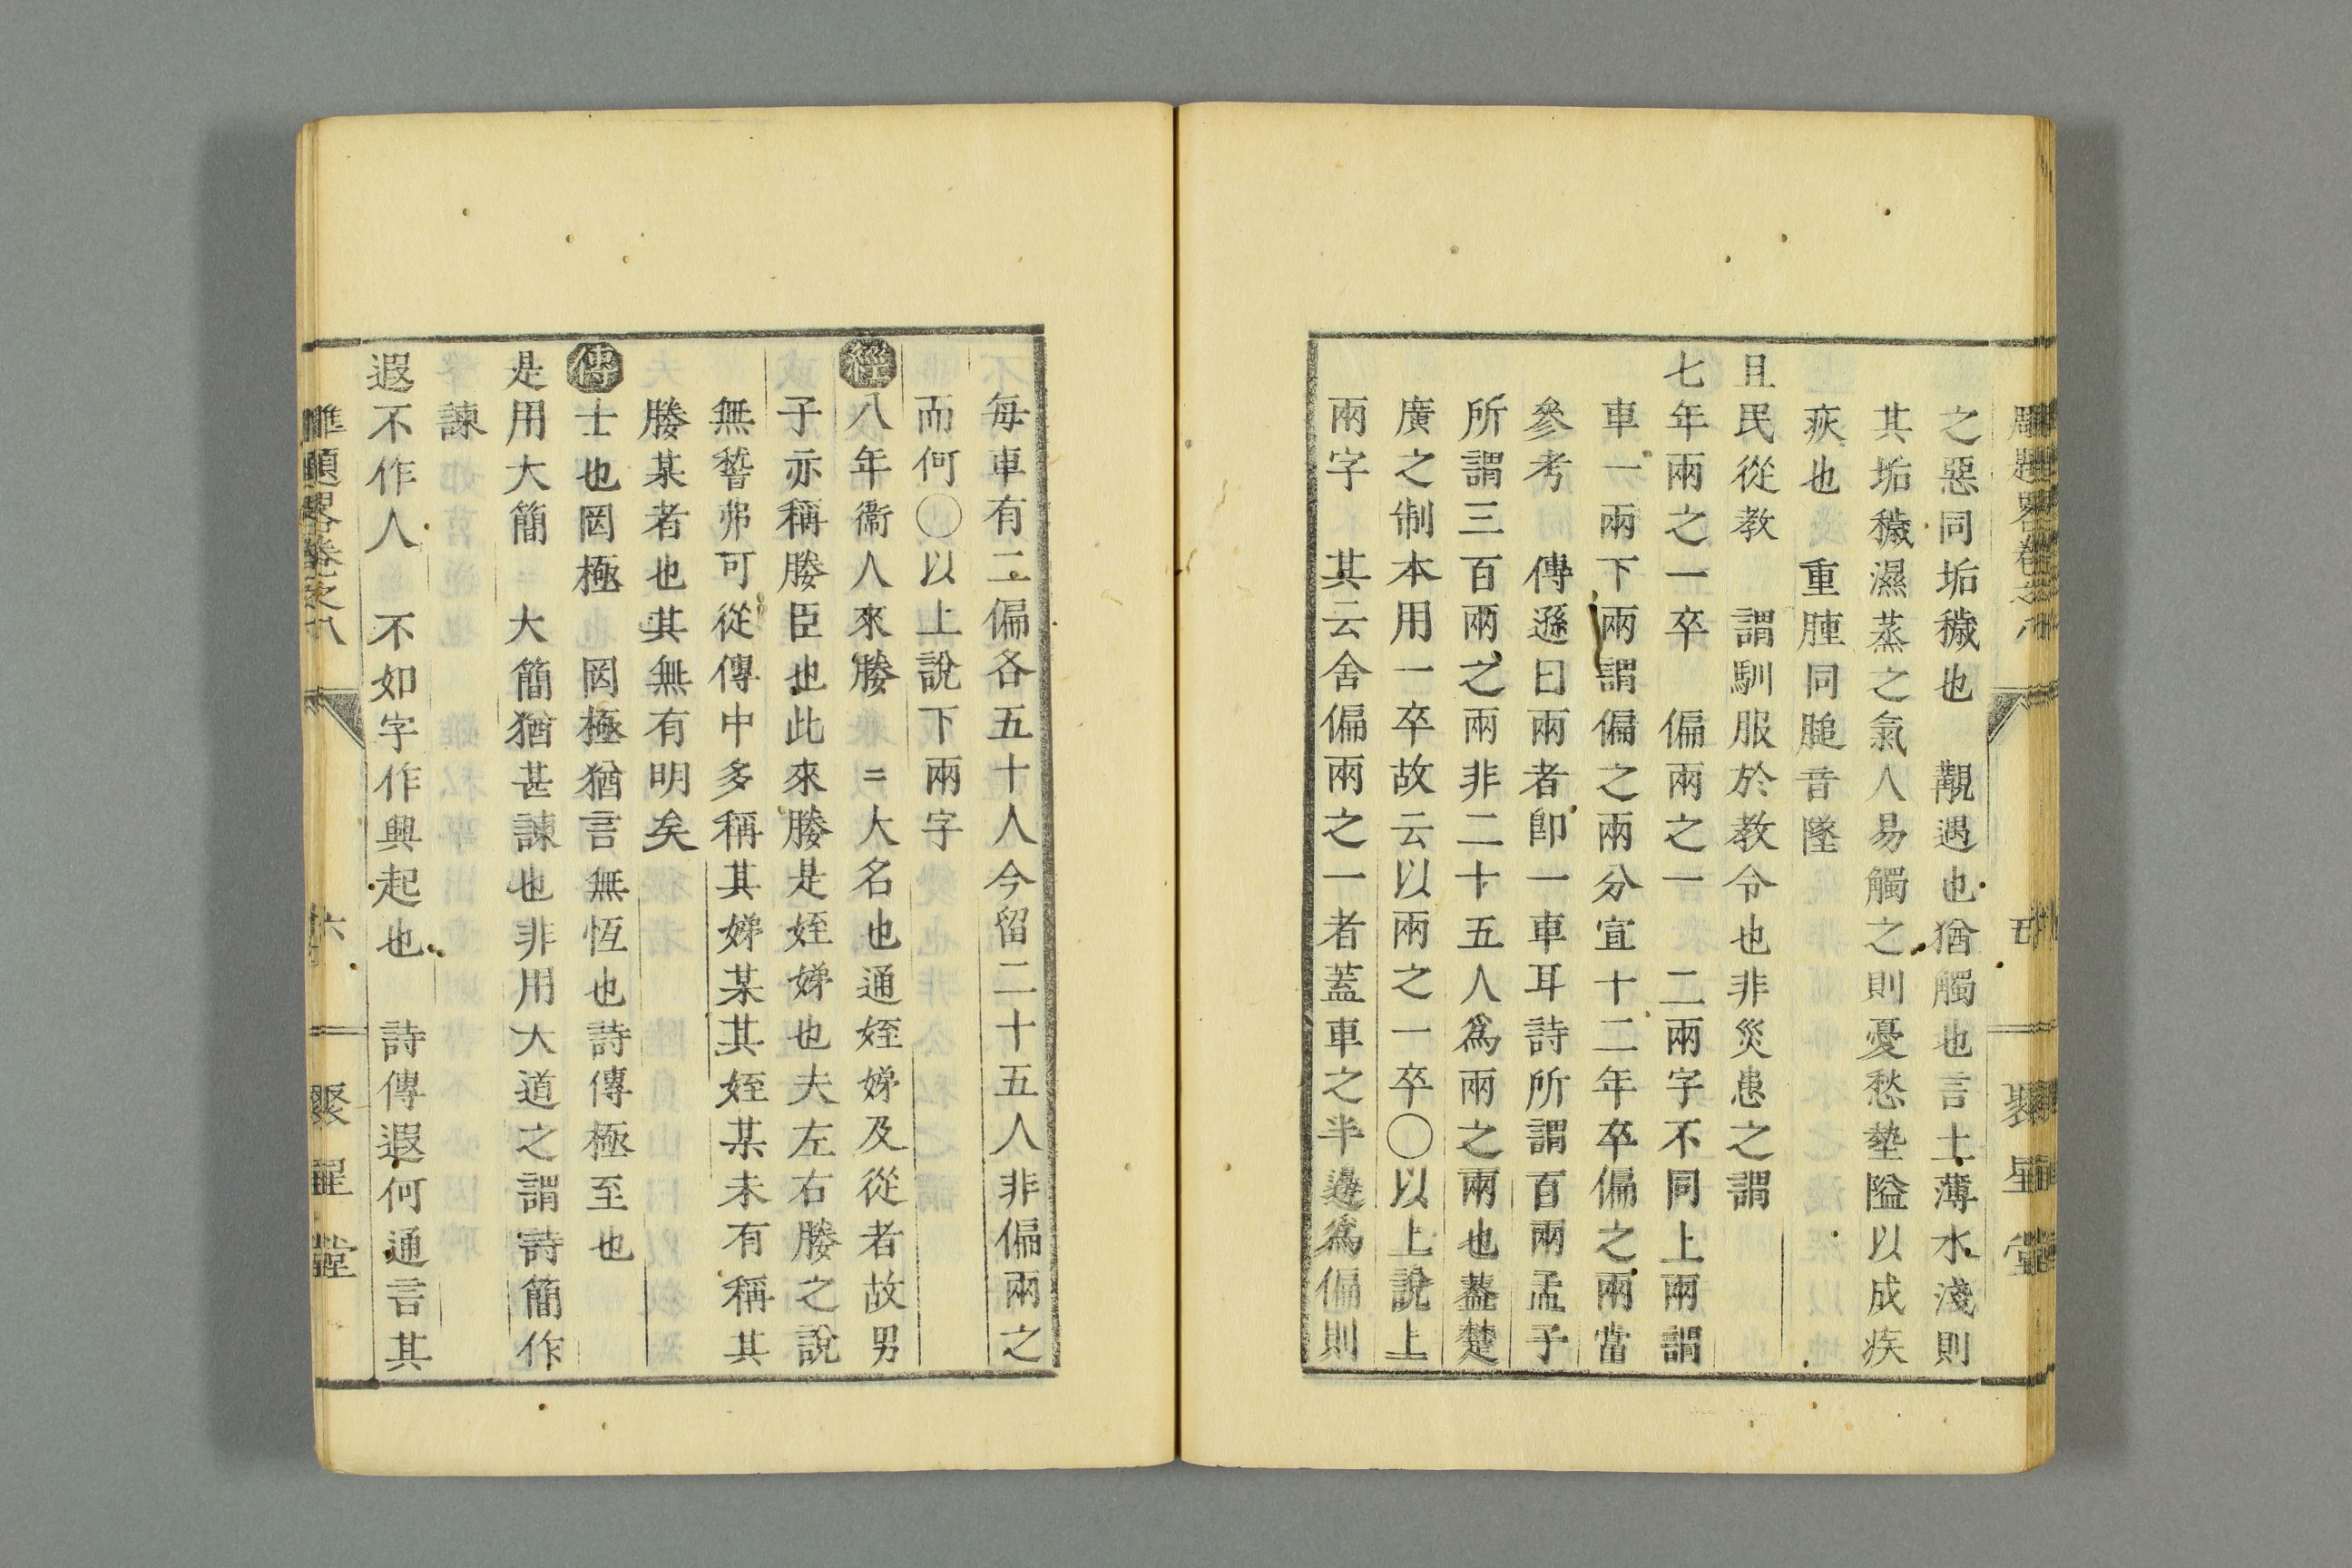 之惡同垢穢也　覯遇也猶觸也言土薄水淺則
其垢穢濕蒸之氣人易觸之則憂愁墊隘以成疾
疢也　重腫同膇音墜
且民從教　謂馴服於教令也非災患之謂
七年兩之一卒　偏兩之一　二兩字不同上兩謂
車一兩下兩謂偏之兩分宣十二年卒偏之兩當
參考　傳遜曰兩者卽一車耳詩所謂百兩孟子
所謂三百兩之兩非二十五人爲兩之兩也蓋楚
廣之制本用一卒故云以兩之一卒〇以上說上
兩字　其云舍偏兩之一者蓋車之半邊爲偏則
五
聚星堂
每車有二偏各五十人今留二十五人非偏兩之
而何〇以上說下兩字
經八年衞人來媵　〓大名也通姪娣及從者故男
子亦稱媵臣也此來媵是姪娣也夫左右媵之說
無暬弗可從傳中多稱其娣某其姪某未有稱其
媵某者也其無有明矣
傳士也罔極　罔極猶言無恆也詩傳極至也
是用大簡〓　大簡猶甚諫也非用大道之謂詩簡作
諫
遐不作人　不如字作興起也　詩傳遐何通言其
雕題畧卷之八
六
聚星堂